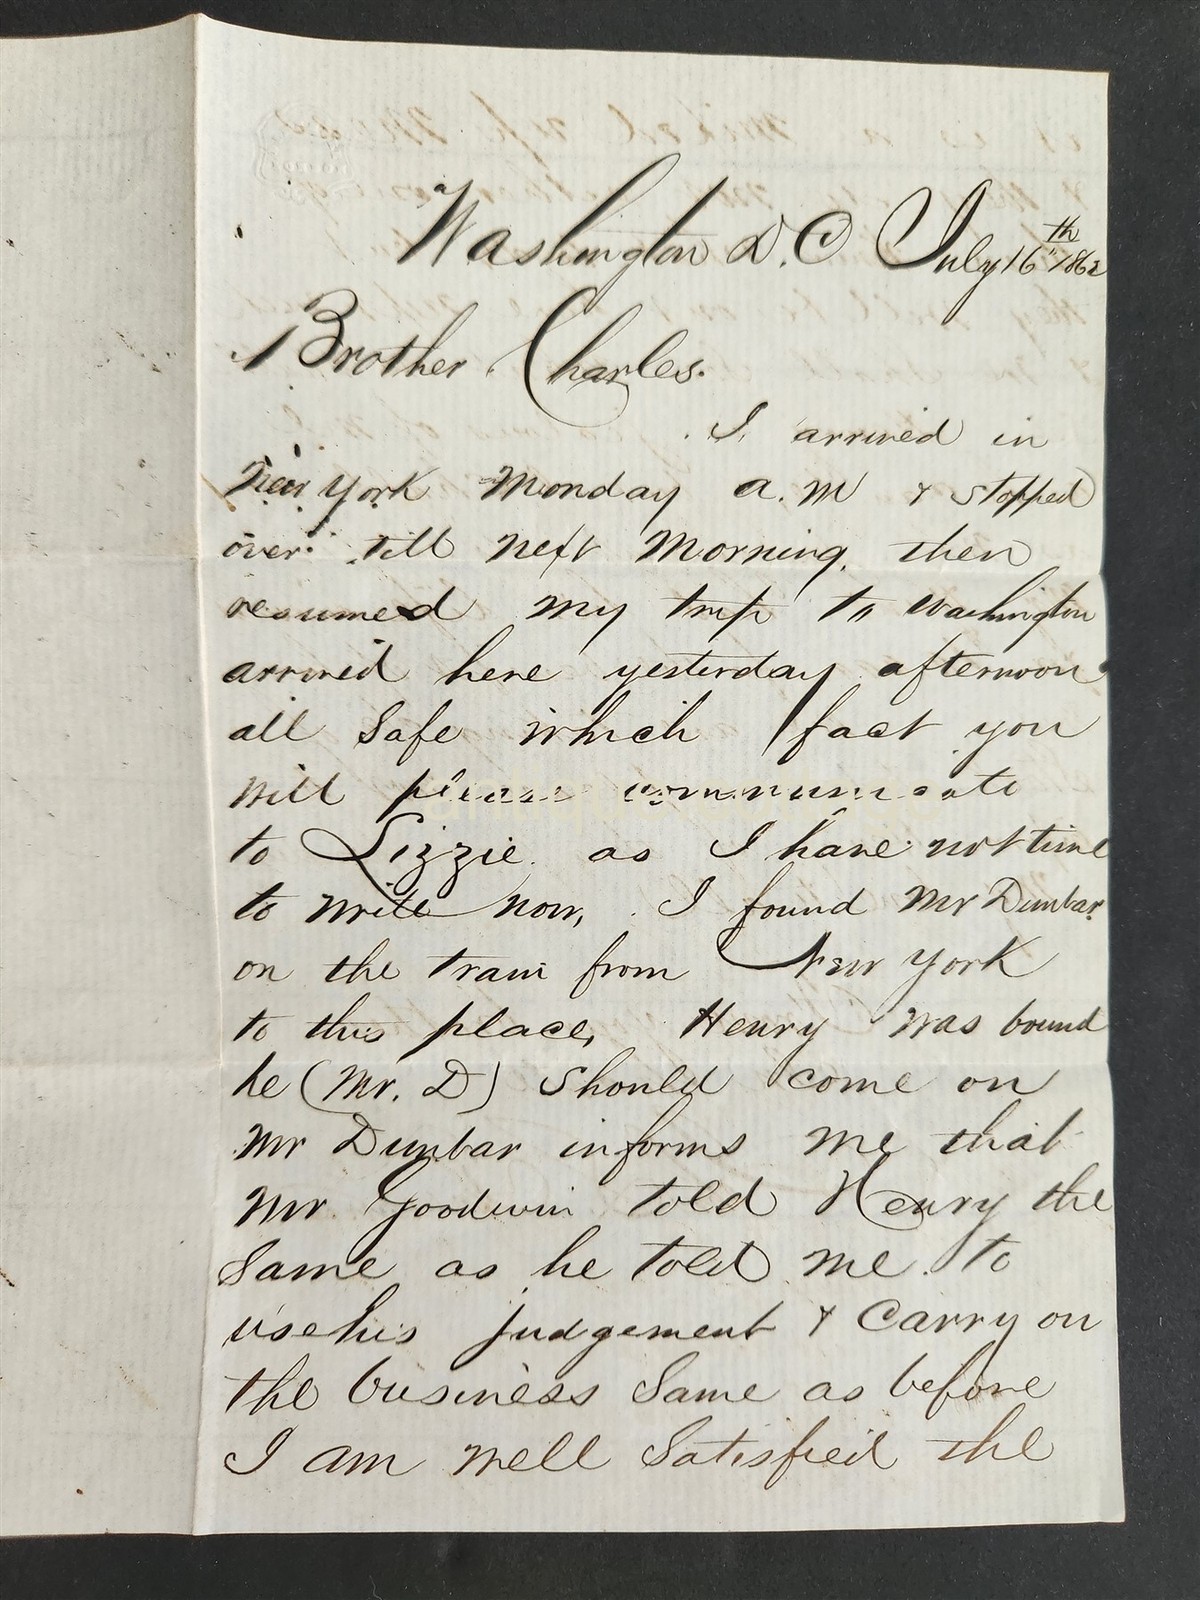 Washington D.C July 16th 1862
Brother Charles.
I arrived in
New York Monday a.m & stopped
over till next morning, then
resumed my trip to Washington
arrived here yesterday afternoon
all safe which fact you
will please communicate
to Lizzie. as I have not time
to write now, I found Mr Dunbar
on the train from New York
to this place, Henry was bound
he (Mr. D) should come on
Mr Dunbar informs me that
Mr. Goodwin told Henry the
same as he told me. to
use his judgement & carry on
the business same as before
I am well satisfied the